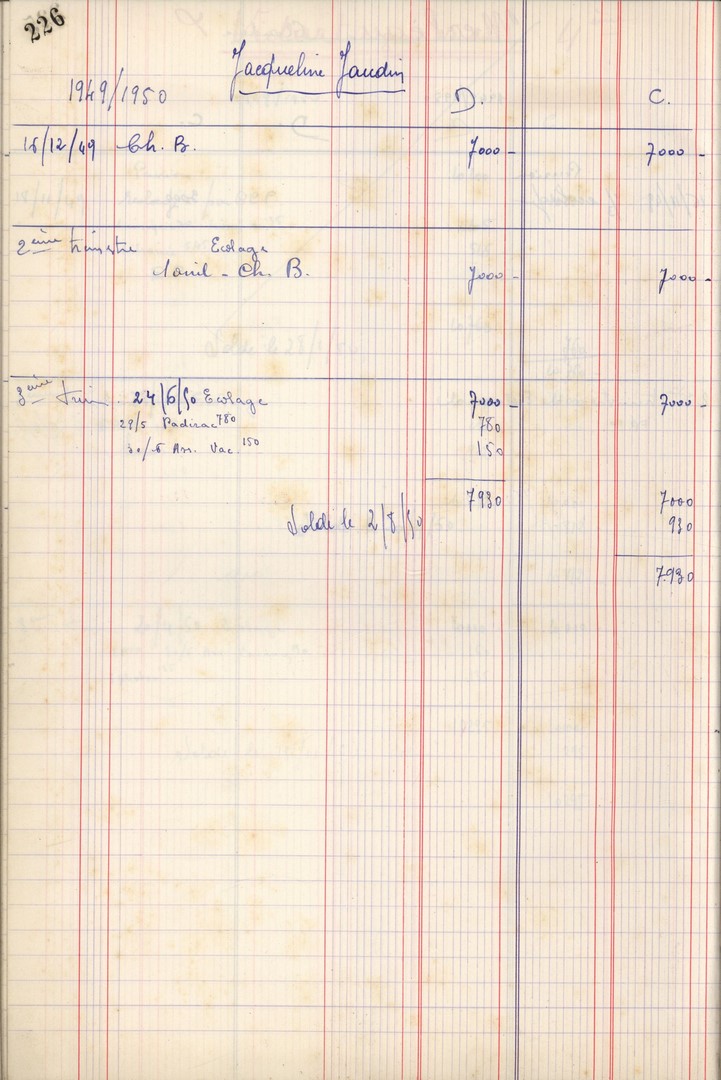 226
Jacqueline Jaudin
1949/1950 D. C.
15/12/49 Ch. B. 7000 - 7000 -
2ème trimestre Ecolage
1 avril - Ch. B. 7000 - 7000 -
3ème trim. 24/6/50 Ecolage 7000 - 7000 -
29/5 Padirac 780 780
30/5 Ass. Vac. 150 150
7930 7000
Soldé le 2/8/50 930
7930